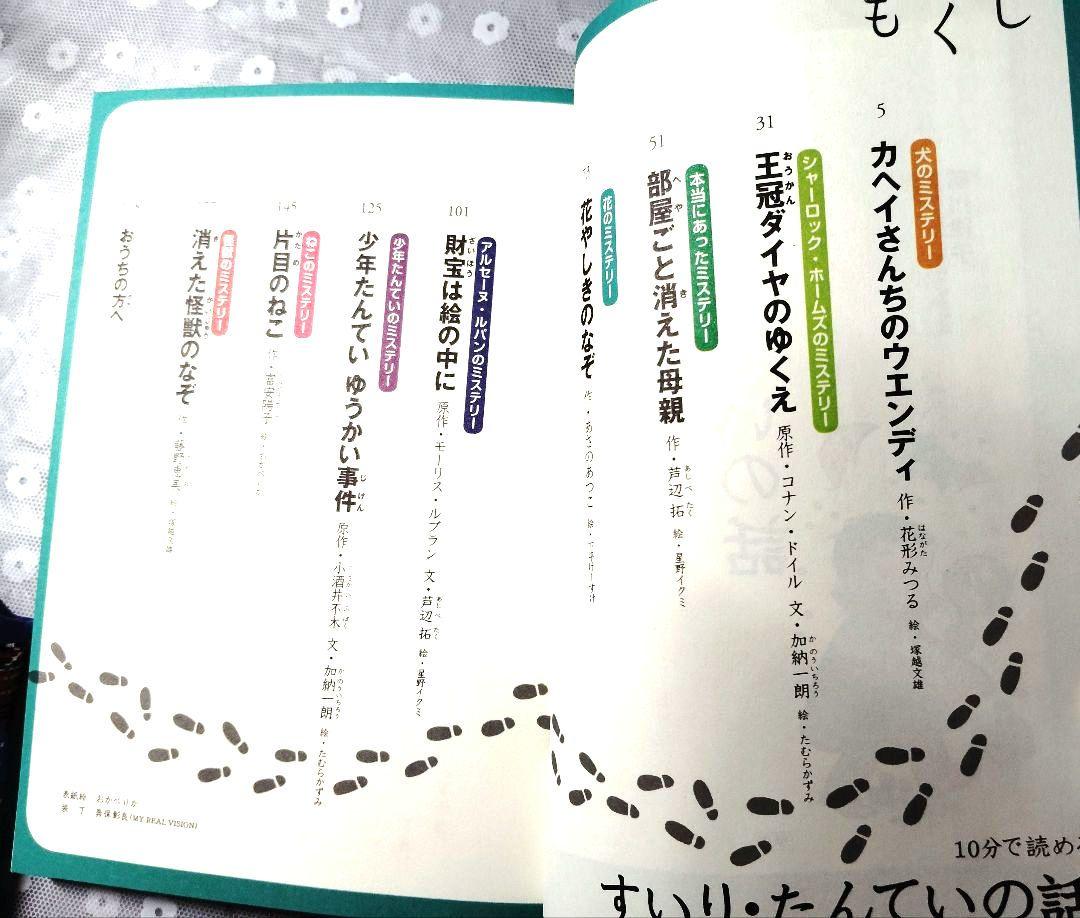 もくじ
犬のミステリー
5
カヘイさんちのウエンディ 作・花形みつる 絵・塚越文雄
はながた
シャーロック・ホームズのミステリー
31
王冠ダイヤのゆくえ 原作・コナン・ドイル 文・加納一朗 絵・たむらかずみ
おうかん
かのういちろう
本当にあったミステリー
51
部屋ごと消えた母親 作・芦辺拓 絵・星野イクミ
へや
き
あしべ たく
花のミステリー
花やしきのなぞ 作・あさのあつこ 絵・
アルセーヌ・ルパンのミステリー
101
財宝は絵の中に 原作・モーリス・ルブラン 文・芦辺拓 絵・星野イクミ
ざいほう
あしべ たく
少年たんていのミステリー
125
少年たんてい ゆうかい事件 原作・小酒井不木 文・加納一朗 絵・たむらかずみ
じけん
かのういちろう
ねこのミステリー
145
片目のねこ 作・富安陽子
かための
のミステリー
消えた怪獣のなぞ 作・藤野恵美 絵・塚越文雄
き
かいじゅう
おうちの方へ
表紙絵 おかべりか
装丁 (MY REAL VISION)
10分で読め
すいり・たんていの話